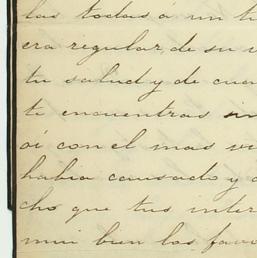 las todas á un ti
era regular, de su v
tu salud y de cua
te encuentras in
oí con el mas vi
habia causado y a
cho que tus inter
mui bien los favo